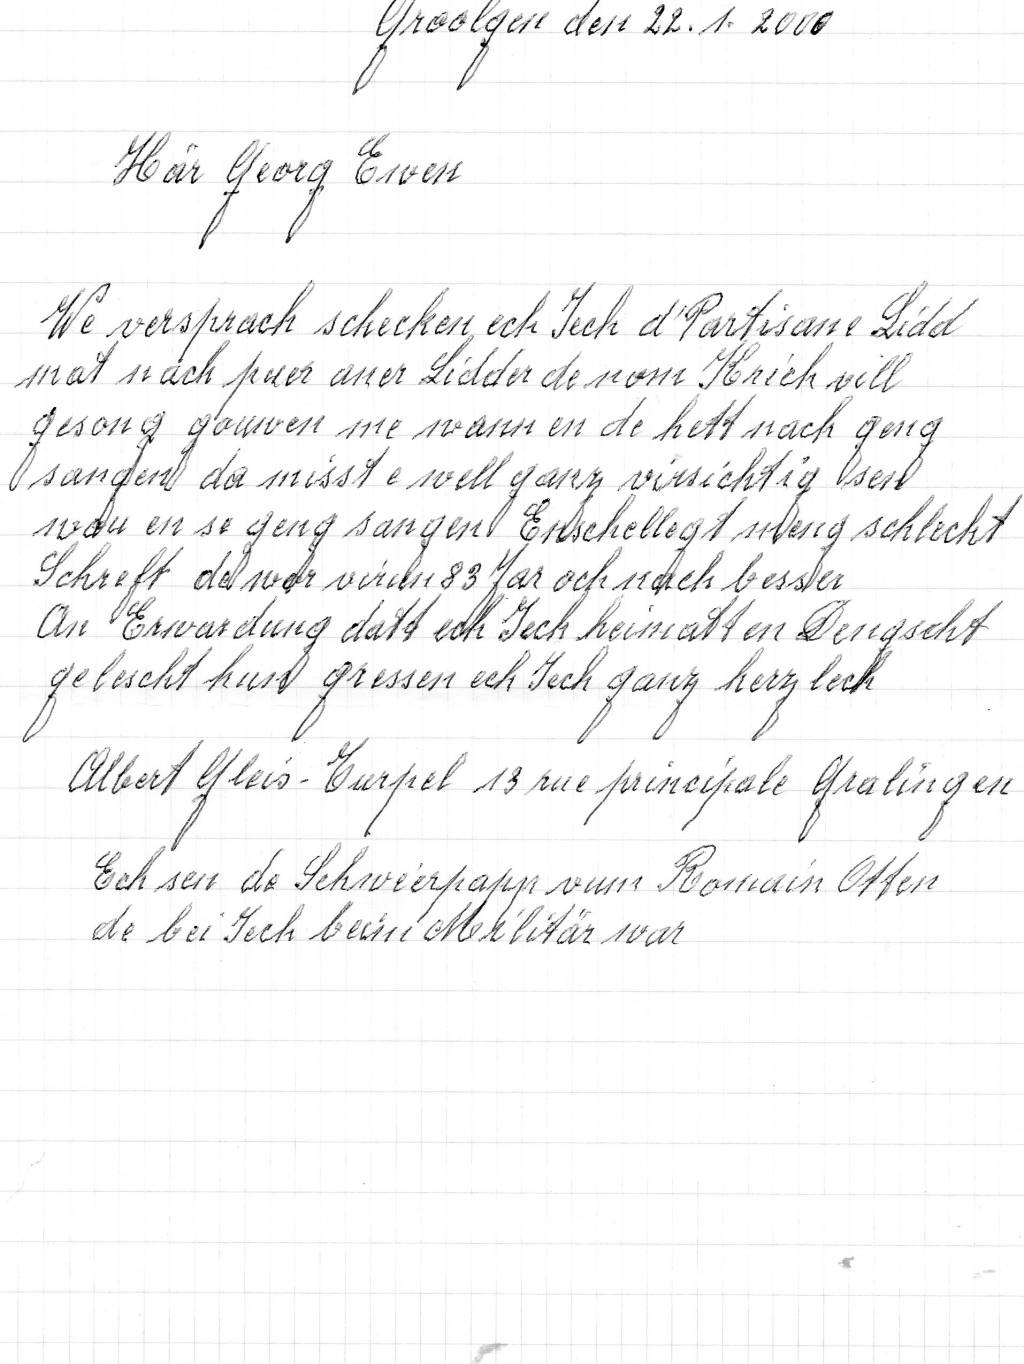 Groolgen den 22. 1. 2000
Här Georg Ewen
We versprach schecken ech Iech d'Partisane Lidd
mat nach puer aner Lidder de nom Krich vill
gesong gouwen me wann en de hett nach geng
sangen da misst e well ganz virsichtig sen
wou en se geng sangen Enschellegt meng schlecht
Schreft de wor virun 83 Jar och nach besser
An Erwardung datt ech Iech heimatt en Dengscht
gelescht hun gressen ech Iech ganz herzlech
Albert Gleis - Turpel 13 rue principale Gralingen
Ech sen de Schweierpapp vum Romain Otten
de bei Iech beim Militär war